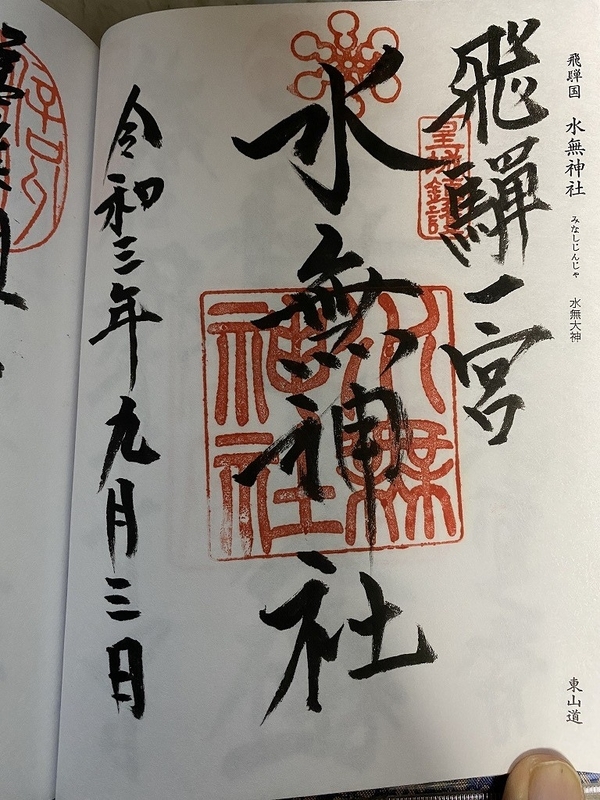 飛騨国　水無神社　みなしじんじゃ　水無大神
東山道
飛騨一宮
皇城鎮護
水無神社
水無神社
令和三年九月三日